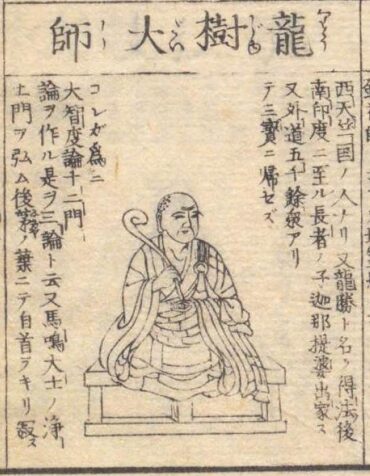 龍樹大師
西天竺国ノ人ナリ又龍勝ト名ク得法後
南印度ニ至ル長者ノ子迦那提婆出家ス
又外道五千餘衆アリ
テ三寳ニ帰セズ
コレガ爲ニ
大智度論十二門
論ヲ作ル是ヲ三論ト云又馬鳴大士ノ浄
土門ヲ弘ム後ノ業ニテ自首ヲキリ寂ス